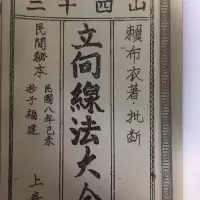 三十四山
賴布衣著·批断
立向線法大全
民間秘本
民國八年己未
抄于福建
上卷